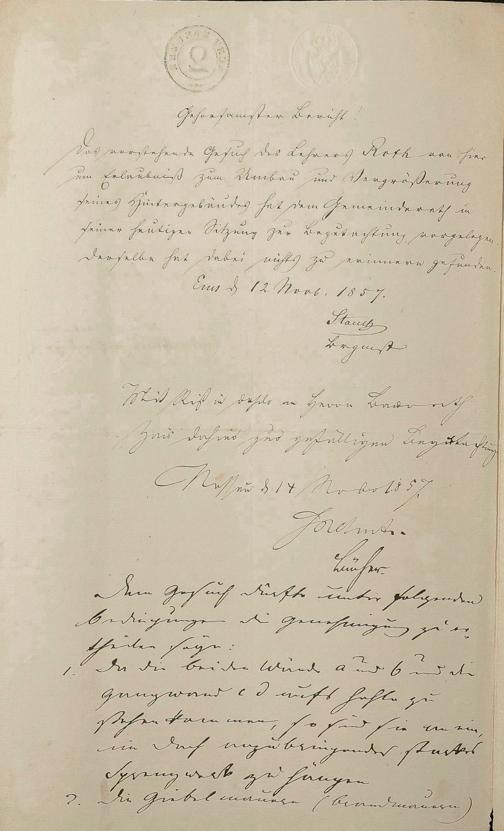 Gehorsamster Bericht!
Das vorstehende Gesuch des Lehrers Roth von hier
um Erlaubniß zum Umbau und Vergrößerung
seines Hintergebäudes hat dem Gemeinderath in
seiner heutigen Sitzung zur Begutachtung vorgelegen
Derselbe hat dabei nichts zu erinnern gefunden.
Ems d 12 Novb. 1857.
Brgmstr
Mit Riß in an Herrn Baurath
dahier zur gefälligen Begutachtung
Nassau d 14 Novb 1857.
Dem Gesuch dürfte unter folgenden
Bedingungen die Genehmigung zu er-
theilen seyn:
1. Da die beiden Wände a und b und die
Gangwand c d aufs hohle zu
stehen kommen, so sind sie an ein,
im Dach anzubringendes starkes
Sprengwerk zu hängen
2. Die Giebelmauern (Brandmauern)